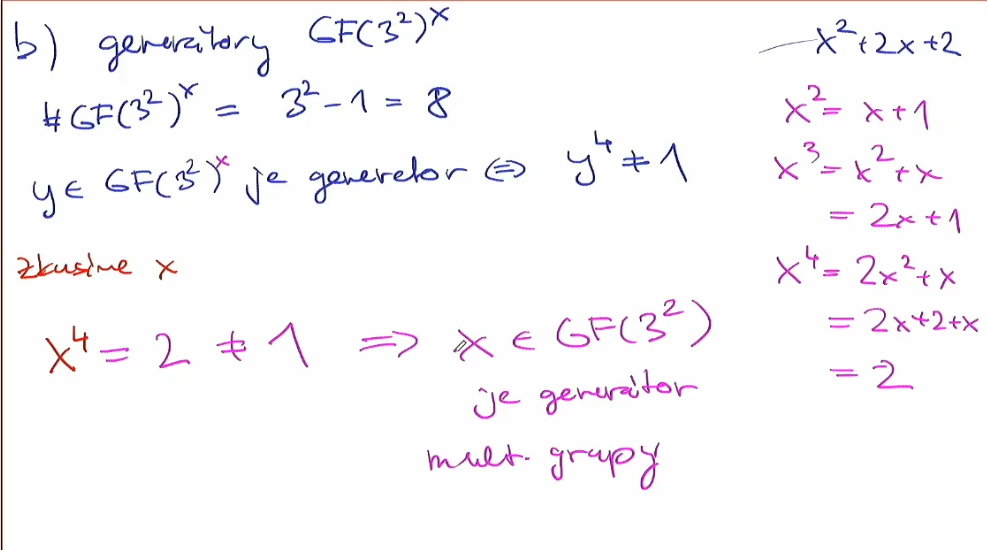 b) generátory GF(3²)ˣ
#GF(3²)ˣ = 3²-1 = 8
y ∈ GF(3²)ˣ je generetor ⇔ y⁴ ≠ 1
zkusíme x
x⁴ = 2 ≠ 1 ⇒ x ∈ GF(3²)
je generátor
mult. grupy
x²+2x+2
x² = x+1
x³ = x²+x
= 2x+1
x⁴ = 2x²+x
= 2x+2+x
= 2